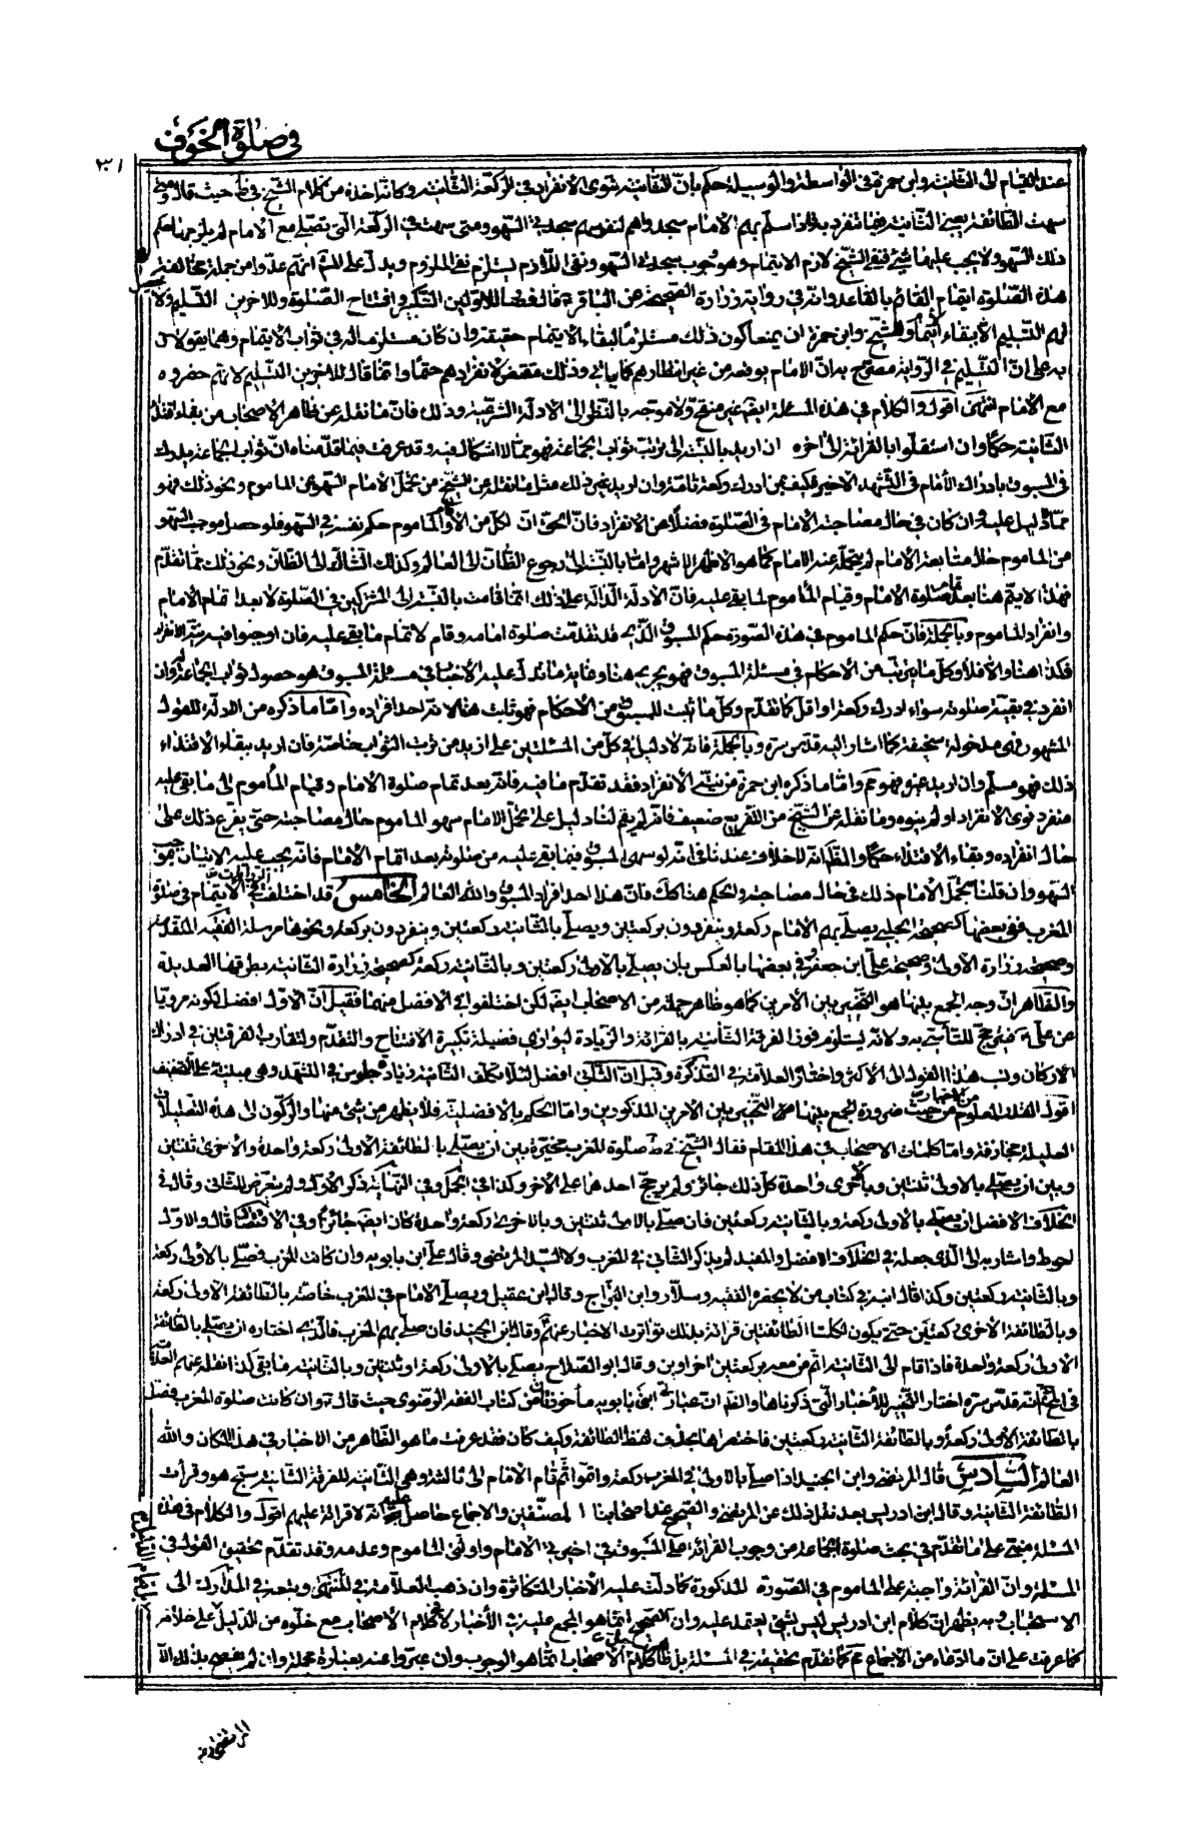 في صلوة الخوف
٣٠١
عند القيام الى الثانية وابن حمزة في الواسطة والوسيلة حكم بان الثانية تنوي الانفراد في الركعة الثانية وكانه اخذه من كلام الشيخ في ط حيث قال ومتى
سهت الطائفة يعني الثانية فيما تنفرد به فاذا سلم بهم الامام سجد وهم لنفوسهم سجدتي السهو ومتى سهت في الركعة التي تصلي مع الامام لم يلزمها حكم
ذلك السهو ولا يجب عليها شيء فنفى الشيخ لازم الايتمام وهو وجوب سجدتي السهو ونفى اللازم يستلزم نفي الملزوم ويدل على انهم عدوا من جملة مخالفة
هذه الصلوة ايتمام القائم بالقاعد وانه في رواية زرارة الصحيحة عن الباقر قال فصار للاولين التكبير وافتتاح الصلوة وللاخرين التسليم ولا
لهم التسليم الا ببقاء ايتمامهم وللشيخ وابن حمزة ان يمنعا كون ذلك مستلزما لبقاء الايتمام حقيقة وان كان مستلزما له في ثواب الايتمام وهما يقولان
به على ان التسليم في الرواية مصرح به ان الامام يوقعه من غير انتظارهم كما ياتي وذلك مقتض لانفرادهم حتما وانما قال للاخرين التسليم لانهم حضروه
مع الامام انتهى اقول والكلام في هذه المسئلة ايضا غير منقح ولا موجه بالنظر الى الادلة الشرعية وذلك فان ما نقله عن ظاهر الاصحاب من بقاء اقتداء
الثانية حكما وان استقلوا بالقرائة الى اخره ان اريد بالنسبة الى ترتب ثواب الجماعة فهو مما لا اشكال فيه وقد عرفت فيما قدمناه ان ثواب الجماعة يدرك
في المسبوق بادراك الامام في التشهد الاخير فكيف بمن ادرك ركعة تامة وان اريد غير ذلك مثل ما نقله عن الشيخ من تحمل الامام السهو عن الماموم ونحو ذلك فهو
مما لا دليل عليه وان كان في حال مصاحبة الامام في الصلوة فضلا عن الانفراد فان الحق ان لكل من الامام والماموم حكم نفسه في السهو فلو حصل موجب السهو
من الماموم خلال متابعة الامام لم يتحمله عنه الامام كما هو الاظهر الاشهر واما بالنسبة الى رجوع الظان الى العالم وكذلك الشاك الى الظان ونحو ذلك مما تقدم
فهذا لا يتم هنا بعد تمام صلوة الامام وقيام الماموم لما بقي عليه فان الادلة الدالة على ذلك انما قامت بالنسبة الى المشتركين في الصلوة لا بعد تمام الامام
وانفراد الماموم وبالجملة فان حكم الماموم في هذه الصورة حكم المسبوق الذي قد تقدمت صلوة امامه وقام لاتمام ما بقي عليه فان اوجبوا فيه نية الانفراد
فكذا هنا والا فلا وكل ما يترتب من الاحكام في مسئلة المسبوق فهو يجري هنا وغاية ما تدل عليه الاخبار في مسئلة المسبوق هو حصول ثواب الجماعة له وان
انفرد في بقية صلوته سواء ادرك ركعة او اقل كما تقدم وكل ما ثبت للمسبوق من الاحكام فهو ثابت هنا لانه احد افراده واما ما ذكره من الادلة للقول
المشهور فهي مدخولة سخيفة كما اشار اليه قدس سره وبالجملة فانه لا دليل في كل من المسئلتين على ازيد من ترتب الثواب خاصة فان اريد ببقاء الاقتداء
ذلك فهو مسلم وان اريد غيره فهو مم واما ما ذكره ابن حمزة من نية الانفراد فقد تقدم ما فيه فانه بعد تمام صلوة الامام وقيام الماموم الى ما بقي عليه
منفرد نوى الانفراد او لم ينوه وما نقله عن الشيخ من التفريع ضعيف فانه لم يقم لنا دليل على تحمل الامام سهو الماموم حال مصاحبته حتى يفرع ذلك على
حال انفراده وبقاء الاقتداء حكما والظ انه لا خلاف عندنا في انه لو سهى المسبوق فيما بقي عليه من صلوته بعد اتمام الامام فانه يجب عليه الاتيان بموجب
السهو وان قلنا بتحمل الامام ذلك في حال مصاحبته والحكم هنا كك فان هذا احد افراد المسبوق والله العالم الخامس قد اختلفت الروايات في الايتمام في صلوة
المغرب ففي بعضها كصحيحة الحلبي يصلي بهم الامام ركعة وينفردون بركعتين ويصلي بالثانية ركعتين وينفردون بركعة ونحوها مرسلة الفقيه المتقدمة
وصحيحة زرارة الاولى وصحيحة علي ابن جعفر وفي بعضها بالعكس بان يصلي بالاولى ركعتين وبالثانية ركعة كصحيحة زرارة الثانية بطرقها العديدة
والظاهر ان وجه الجمع بينها هو التخيير بين الامرين كما هو ظاهر جملة من الاصحاب ايضا لكن اختلفوا في الافضل منهما فقيل ان الاول افضل لكونه مرويا
عن علي ع فيترجح للتأسي به ولانه يستلزم فوز الفرقة الثانية بالقرائة والزيادة ليوازي فضيلة تكبيرة الافتتاح والتقدم ولتقارب الفرقتين في ادراك
الاركان ونسب هذا القول الى الاكثر واختاره العلامة في التذكرة وقيل ان الثاني افضل لئلا تكلف الثانية زيادة جلوس في التشهد وهي مبنية على التخفيف
اقول القدر المعلوم من الاخبار من حيث ضرورة الجمع بينها هو التخيير بين الامرين المذكورين واما الحكم بالافضلية فلا يظهر من شيء منها والركون الى هذه التعليلات
العليلة مجازفة واما كلمات الاصحاب في هذا المقام فقال الشيخ في ط صلوة المغرب مخيرة بين ان يصلي بالطائفة الاولى ركعة واحدة والاخرى ثنتين
وبين ان يصلي بالاولى ثنتين وبالاخرى واحدة كل ذلك جائز ولم يرجح احدهما على الاخر وكذا في الجمل وفي النهاية ذكر الاول ولم يتعرض للثاني وقال في
الخلاف الافضل ان يصلي بالاولى ركعة وبالثانية ركعتين فان صلى بالاولى ثنتين وبالاخرى ركعة واحدة كان ايضا جائزا وفي الاقتصاد قال والاول
احوط واشار به الى الذي جعله في الخلاف الافضل والمفيد لم يذكر الثاني في المغرب ولا السيد المرتضى وقال علي ابن بابويه وان كانت المغرب فصلي بالاولى ركعة
وبالثانية ركعتين وكذا قال ابنه في كتاب من لا يحضره الفقيه وسلار وابن البراج وقال ابن عقيل ويصلي الامام في المغرب خاصة بالطائفة الاولى ركعة
وبالطائفة الاخرى ركعتين حتى يكون لكلتا الطائفتين قرائة بذلك تواترت الاخبار عنهم وقال ابن الجنيد فان صلى بهم المغرب فالذي اختاره ان يصلي بالطائفة
الاولى ركعة واحدة فاذا قام الى الثانية اتم من معه بركعتين اخراوين وقال ابو الصلاح يصلي بالاولى ركعة او ثنتين وبالثانية ما بقي كذا نقله عنهم العلامة
في المختلف ثم انه قدس سره اختار التخيير للاخبار التي ذكرناها والظ ان عبارة ابني بابويه مأخوذة من كتاب الفقه الرضوي حيث قال ع وان كانت صلوة المغرب فصل
بالطائفة الاولى ركعة وبالطائفة الثانية ركعتين فاختصراها بحذف لفظ الطائفة وكيف كان فقد عرفت ما هو الظاهر من الاخبار في هذا المكان والله
العالم السادس قال المرتضى وابن الجنيد اذا صلى بالاولى في المغرب ركعة واتموا ثم قام الامام الى ثالثته وهي الثانية للفرقة الثانية سبح هو وقرأت
الطائفة الثانية وقال ابن ادريس بعد نقل ذلك عن المرتضى والصحيح عند اصحابنا المصنفين والاجماع حاصل عليه انه لا قرائة عليهم اقول والكلام في هذه
المسئلة مبني على ما تقدم في بحث صلوة الجماعة من وجوب القرائة على المسبوق في اخيرتي الامام واولتي الماموم وعدمه وقد تقدم تحقيق القول في
المسئلة وان القرائة واجبة على الماموم في الصورة المذكورة كما دلت عليه الاخبار المتكاثرة وان ذهب العلامة في المنتهى وتبعه في المدارك الى
الاستحباب وبه يظهر ان كلام ابن ادريس ليس بشيء يعتمد عليه وان الصحيح انما هو المجمع عليه في الاخبار لا في كلام الاصحاب مع خلوه من الدليل على خلافه
كما عرفت على ان ما ادعاه من الاجماع مم كما تقدم تحقيقه في المسئلة بل ظاهر كلام الاصحاب انما هو الوجوب وان عبروا عنه بعبارة مجملة وان لم يفصح بذلك الا
المرتضى